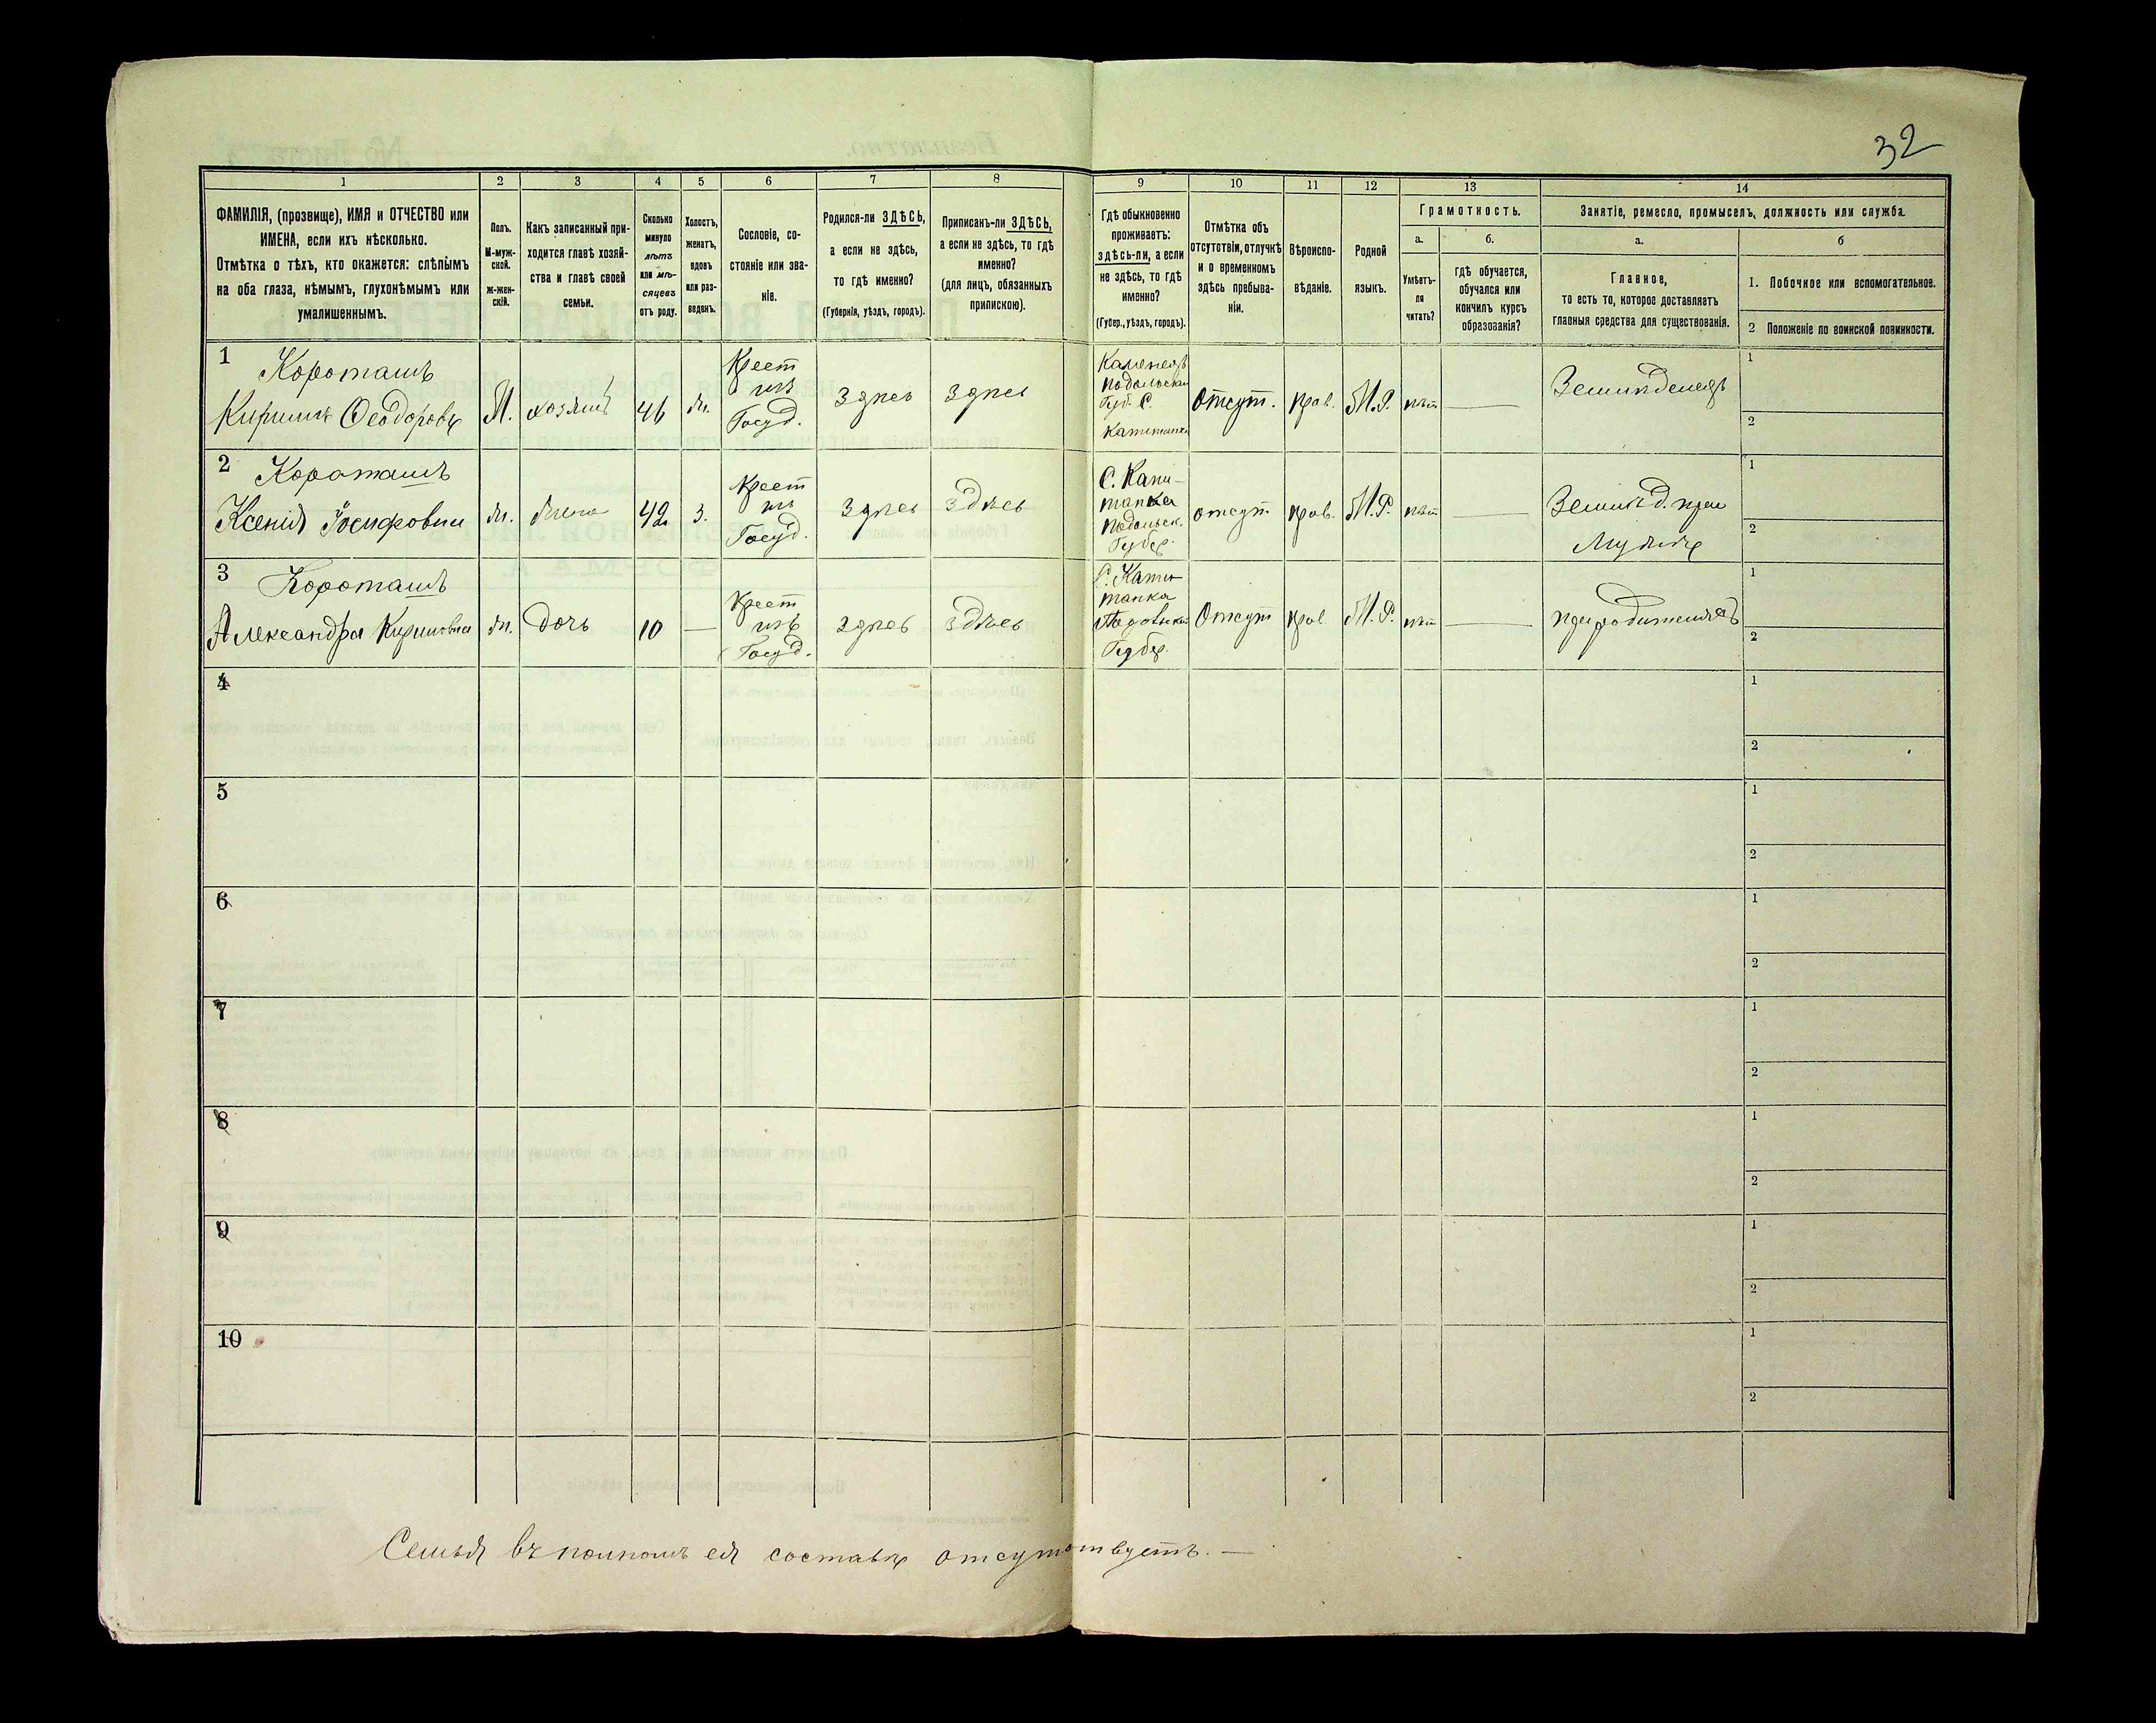 32
1
2
3
4
5
6
7
8
9
10
11
12
13
14
ФАМИЛІЯ, (прозвище), ИМЯ и ОТЧЕСТВО или
ИМЕНА, если ихъ нѣсколько.
Отмѣтка о тѣхъ, кто окажется: слѣпымъ
на оба глаза, нѣмымъ, глухонѣмымъ или
умалишеннымъ.
Полъ.
М-муж-
ской.
Ж-жен-
скій.
Какъ записанный при-
ходится главѣ хозяй-
ства и главѣ своей
семьи.
Сколько
минуло
лѣтъ
или мѣ-
сяцевъ
отъ роду.
Холостъ,
женатъ,
вдовъ
или раз-
веденъ.
Сословіе, со-
стояніе или зва-
ніе.
Родился-ли ЗДѢСЬ,
а если не здѣсь,
то гдѣ именно?
(Губернія, уѣздъ, городъ).
Приписанъ-ли ЗДѢСЬ,
а если не здѣсь, то гдѣ
именно?
(для лицъ, обязанныхъ
припискою).
Гдѣ обыкновенно
проживаетъ:
здѣсь-ли, а если
не здѣсь, то гдѣ
именно?
(Губер., уѣздъ, городъ).
Отмѣтка объ
отсутствіи, отлучкѣ
и о временномъ
здѣсь пребыва-
ніи.
Вѣроиспо-
вѣданіе.
Родной
языкъ.
Грамотность.
а.
Умѣетъ-
ли
читать?
б.
гдѣ обучается,
обучался или
кончилъ курсъ
образованія?
Занятіе, ремесло, промыселъ, должность или служба.
а.
Главное,
то есть то, которое доставляетъ
главныя средства для существованія.
б
1. Побочное или вспомогательное.
2 Положеніе по воинской повинности.
1
Короташъ
Кирилъ Ѳеодоровъ
М.
хозяинъ
46
ж.
Крест
изъ
Госуд.
Здѣсь
Здѣсь
Каменецъ
Подольская
Губ. С.
Капитанка
Отсут.
прав.
М.Р.
нѣт
Земледелецъ
1
2
2
Короташъ
Ксенія Іосифовна
ж.
жена
42
З.
Крест
изъ
Госуд.
Здѣсь
Здѣсь
С. Капи-
танка
Подольск.
Губер.
отсут
прав.
М.Р.
нѣт
Землед. при
Мужѣ
1
2
3
Короташъ
Александра Кириловна
ж.
дочь
10
—
Крест
изъ
Госуд.
Здѣсь
Здѣсь
С. Капи
танка
Подольска
Губер.
Отсут
прав
М.Р.
нѣт
при родителяхъ
1
2
4
1
2
5
1
2
6
1
2
7
1
2
8
1
2
9
1
2
10
1
2
Семья въ полномъ ея составѣ отсутствуетъ. —